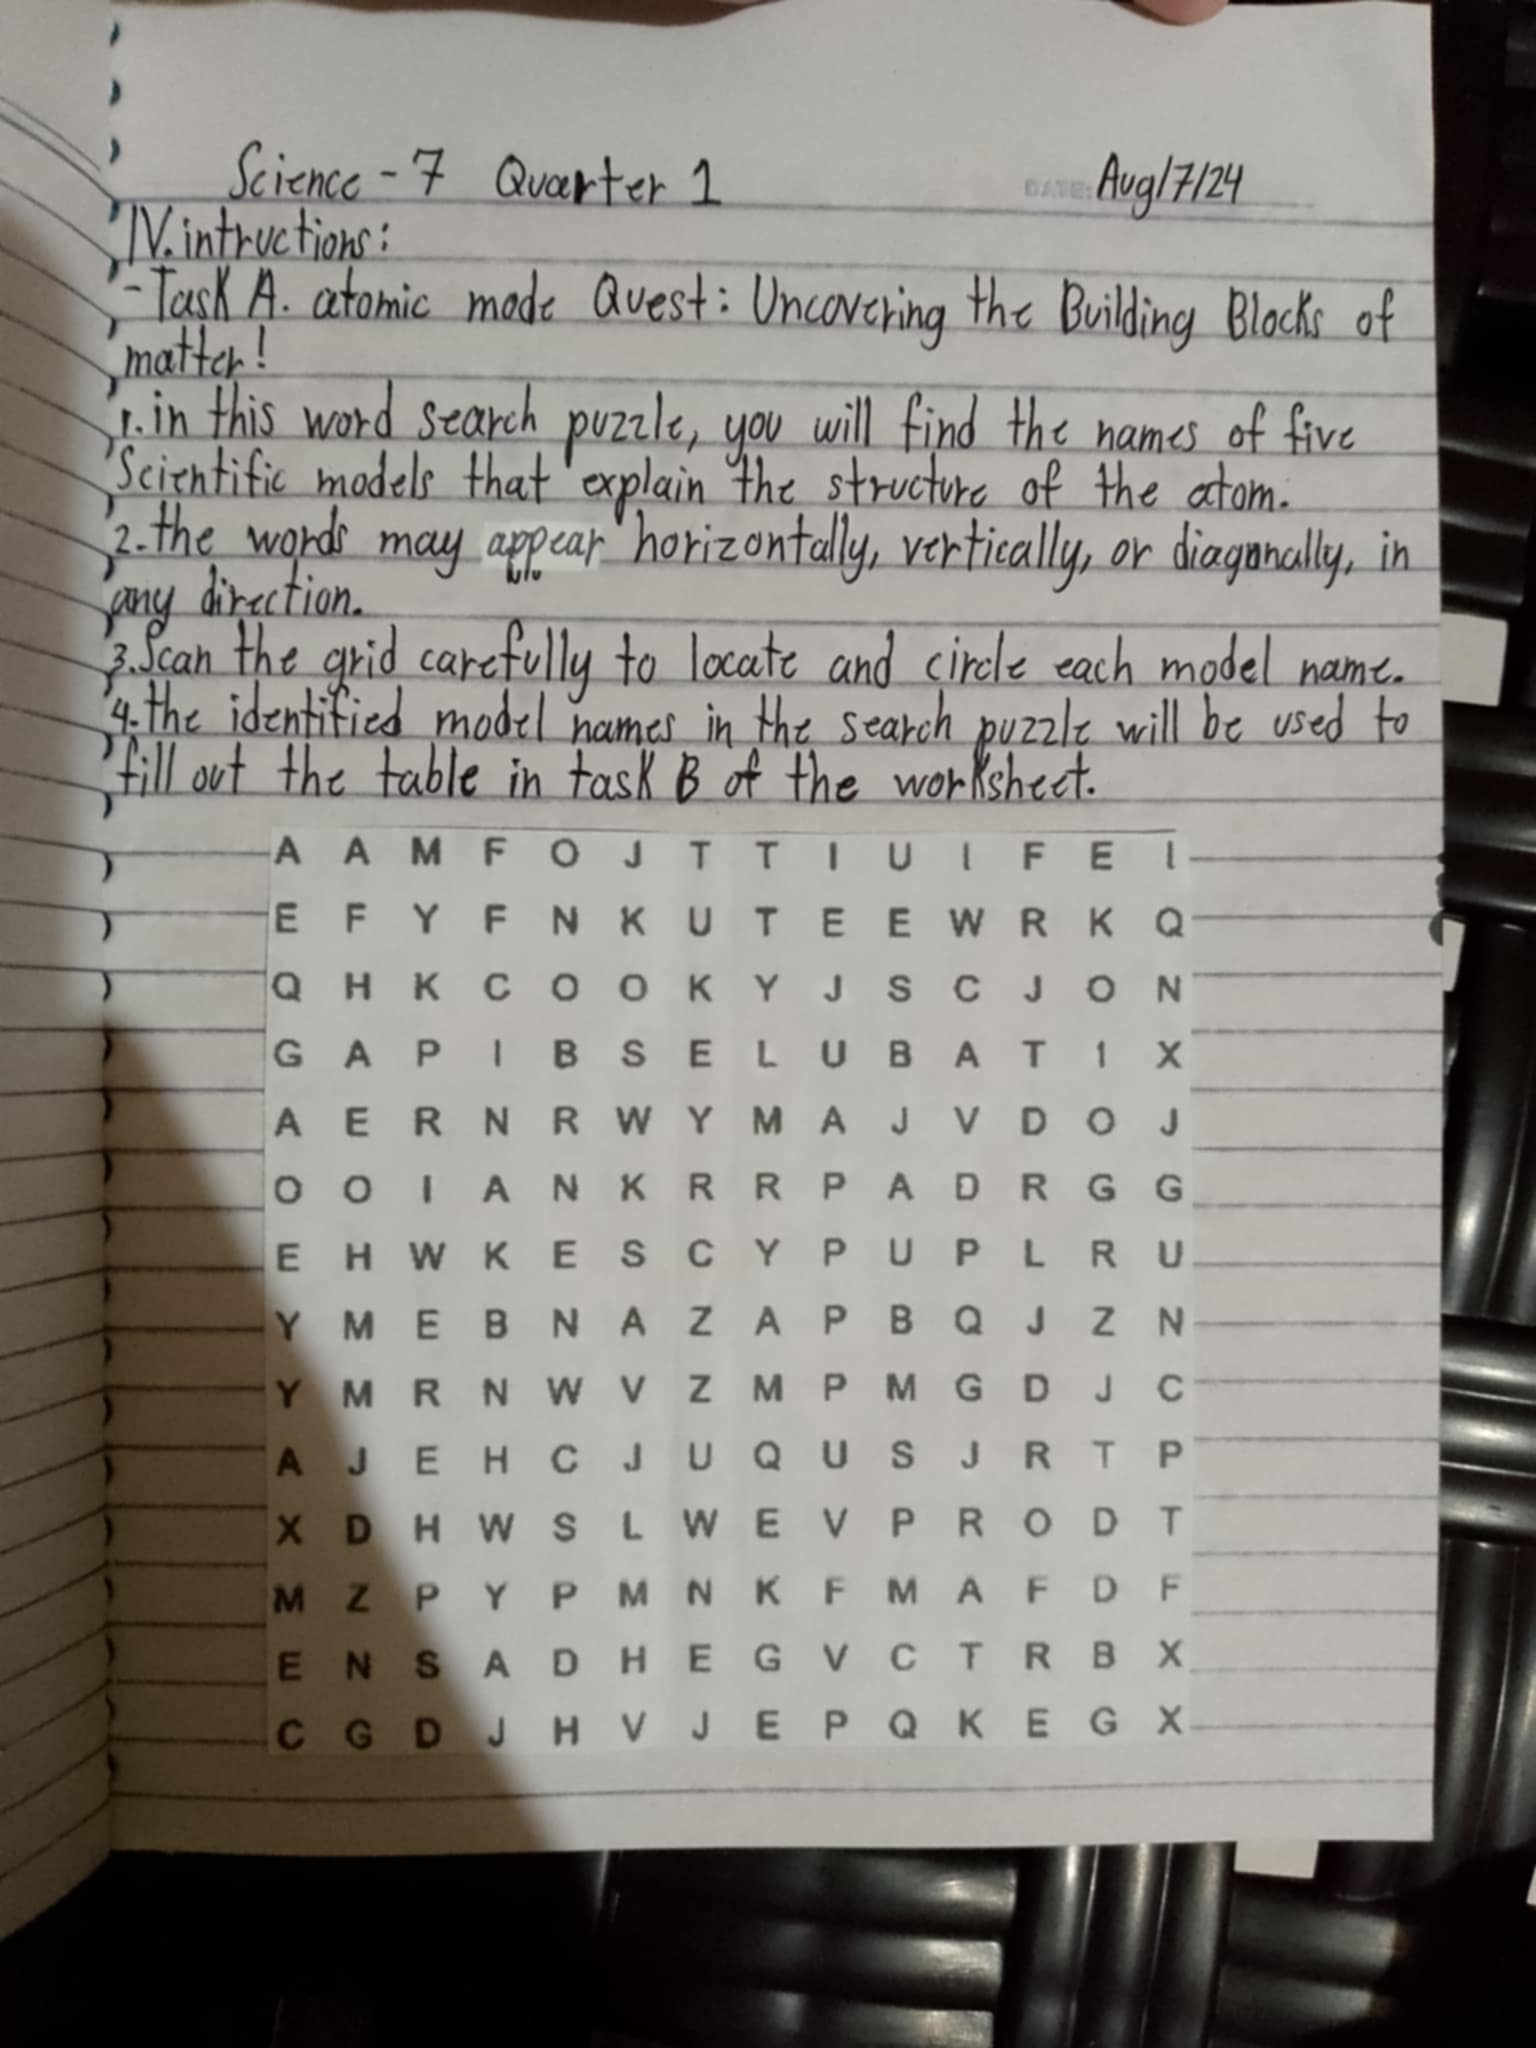 Science - 7 Quarter 1 DATE: Aug/7/24
IV. intructions:
- Task A. atomic mode Quest: Uncovering the Building Blocks of
matter!
1. in this word search puzzle, you will find the names of five
Scientific models that explain the structure of the atom.
2. the words may appear horizontally, vertically, or diagonally, in
any direction.
3. Scan the grid carefully to locate and circle each model name.
4. the identified model names in the search puzzle will be used to
fill out the table in task B of the worksheet.
A A M F O J T T I U I F E I
E F Y F N K U T E E W R K Q
Q H K C O O K Y J S C J O N
G A P I B S E L U B A T 1 X
A E R N R W Y M A J V D O J
O O I A N K R R P A D R G G
E H W K E S C Y P U P L R U
Y M E B N A Z A P B Q J Z N
Y M R N W V Z M P M G D J C
A J E H C J U Q U S J R T P
X D H W S L W E V P R O D T
M Z P Y P M N K F M A F D F
E N S A D H E G V C T R B X
C G D J H V J E P Q K E G X